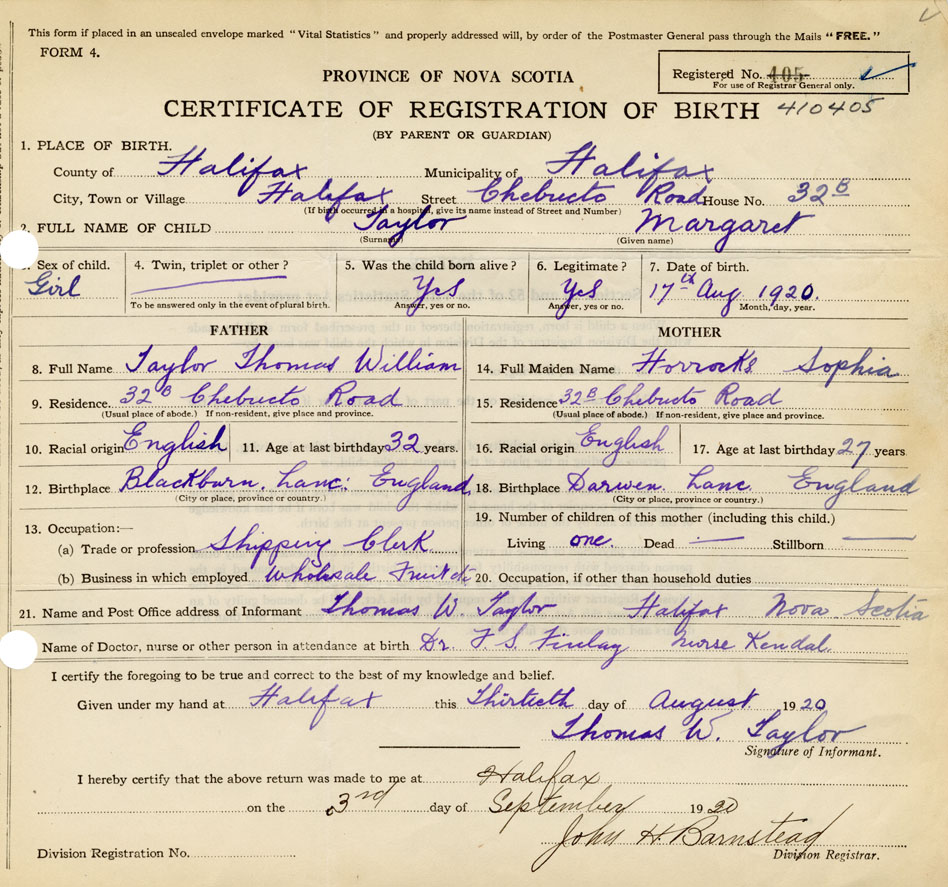 This form if placed in an unsealed envelope marked "Vital Statistics" and properly addressed will, by order of the Postmaster General pass through the Mails "FREE."
FORM 4.
PROVINCE OF NOVA SCOTIA
Registered No. 405
For use of Registrar General only.
CERTIFICATE OF REGISTRATION OF BIRTH 410405
(BY PARENT OR GUARDIAN)
1. PLACE OF BIRTH.
County of Halifax Municipality of Halifax
City, Town or Village Halifax Street Chebucto Road House No. 32B
(If birth occurred in a hospital, give its name instead of Street and Number)
2. FULL NAME OF CHILD Taylor Margaret
(Surname) (Given name)
3. Sex of child. 4. Twin, triplet or other? 5. Was the child born alive? 6. Legitimate? 7. Date of birth.
Girl Yes Yes 17th Aug 1920.
To be answered only in the event of plural birth. Answer, yes or no. Answer, yes or no. Month, day, year.
FATHER MOTHER
8. Full Name Taylor Thomas William 14. Full Maiden Name Horrocks Sophia
9. Residence. 32B Chebucto Road 15. Residence 32B Chebucto Road
(Usual place of abode.) If non-resident, give place and province. (Usual place of abode.) If non-resident, give place and province.
10. Racial origin English 11. Age at last birthday 32 years. 16. Racial origin English 17. Age at last birthday 27 years
12. Birthplace Blackburn, Lanc: England, 18. Birthplace Darwen. Lanc. England
(City or place, province or country.) (City or place, province or country.)
13. Occupation:— 19. Number of children of this mother (including this child.)
(a) Trade or profession Shipping Clerk Living one. Dead — Stillborn —
(b) Business in which employed Wholesale Fruit etc 20. Occupation, if other than household duties
21. Name and Post Office address of Informant Thomas W. Taylor Halifax Nova Scotia
Name of Doctor, nurse or other person in attendance at birth Dr. F. S. Finlay Nurse Kendal.
I certify the foregoing to be true and correct to the best of my knowledge and belief.
Given under my hand at Halifax this Thirtieth day of August 1920
Thomas W. Taylor
Signature of Informant.
I hereby certify that the above return was made to me at Halifax
on the 3rd day of September 1920
John H Barnstead
Division Registrar.
Division Registration No.